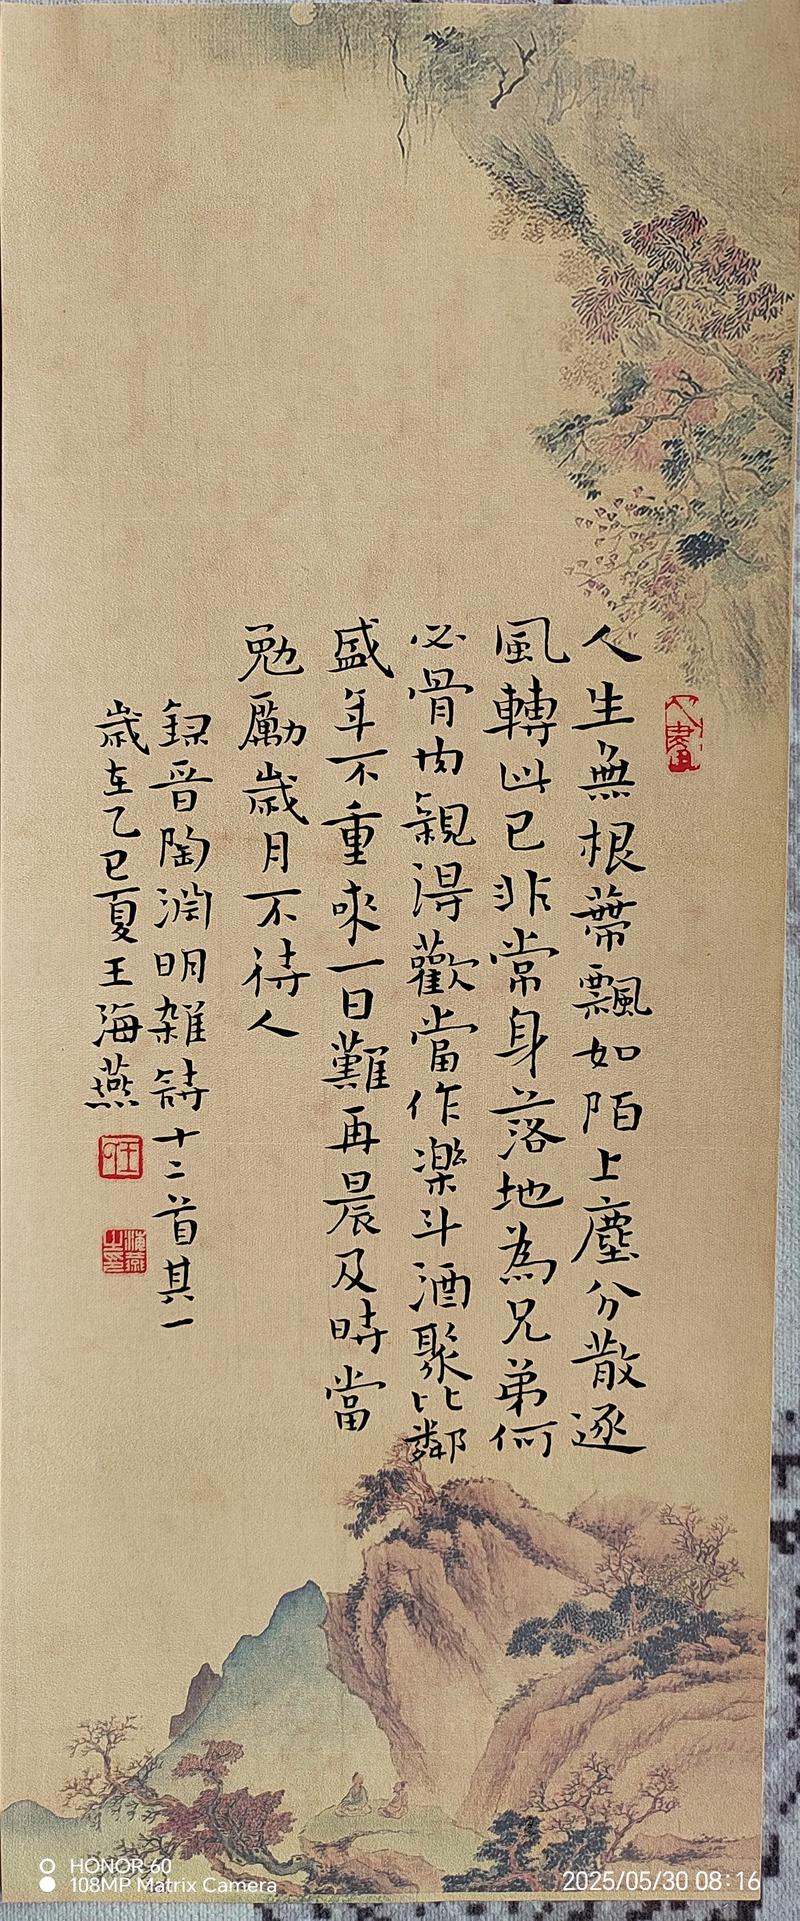 人生無根蔕飄如陌上塵分散逐
風轉此已非常身落地為兄弟何
必骨肉親得歡當作樂斗酒聚比鄰
盛年不重来一日難再晨及時當
勉勵歲月不待人
録晋陶淵明雑詩十二首其一
歲在乙巳夏王海燕
王
海燕
HONOR 60
108MP Matrix Camera
2025/05/30 08:16